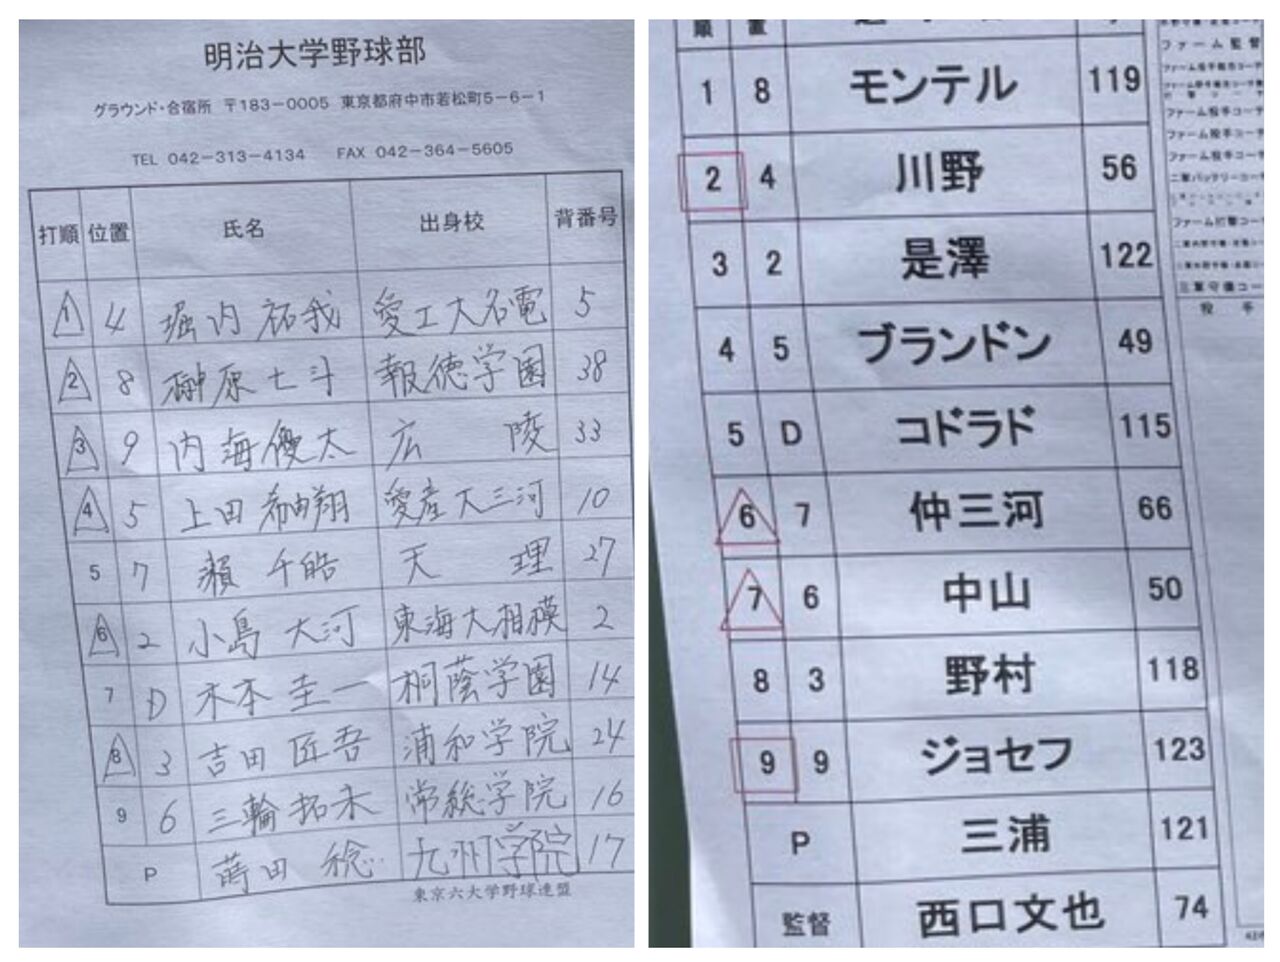 明治大学野球部
グラウンド・合宿所 〒183-0005 東京都府中市若松町5-6-1
TEL 042-313-4134 FAX 042-364-5605
打順 位置 氏名 出身校 背番号
1 4 堀内 祐我 愛工大名電 5
2 8 榊原 七斗 報徳学園 38
3 9 内海優太 広 陵 33
4 5 上田 希由翔 愛産大三河 10
5 7 瀬 千皓 天 理 27
6 2 小島 大河 東海大相模 2
7 D 木本 圭一 桐蔭学園 14
8 3 吉田 匠吾 浦和学院 24
9 6 三輪 拓未 常総学院 16
P 蒔田 稔 九州学院 17
東京六大学野球連盟
順 置
1 8 モンテル 119
2 4 川野 56
3 2 是澤 122
4 5 ブランドン 49
5 D コドラド 115
6 7 仲三河 66
7 6 中山 50
8 3 野村 118
9 9 ジョセフ 123
P 三浦 121
監督 西口文也 74
ファーム監督
ファーム投手コーチ
ファーム投手コーチ
二軍バッテリーコーチ
ファーム打撃コーチ
三軍守備コー
投 手